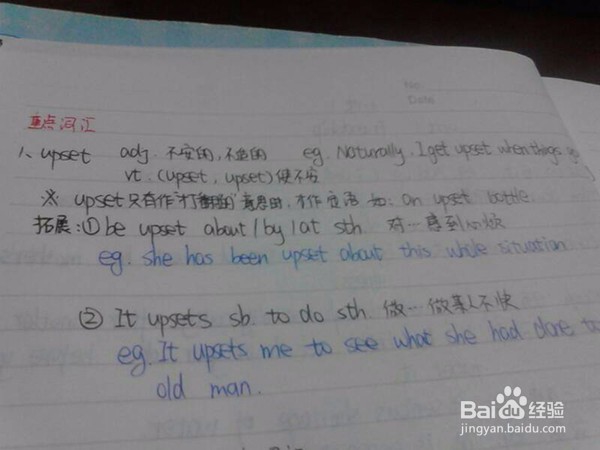 No.
Date
重点词汇
1、upset adj. 不安的,不适的 eg. Naturally, I get upset when things
vt. (upset, upset) 使不安
※ upset只有作"打翻的"意思时,才作定语 如: an upset bottle.
拓展:① be upset about / by / at sth. 对…感到心烦
eg. she has been upset about this whole situation
② It upsets sb. to do sth. 做…做某人不快
eg. It upsets me to see what she had done to
old man.
Bai经验
jingyan.baidu.com